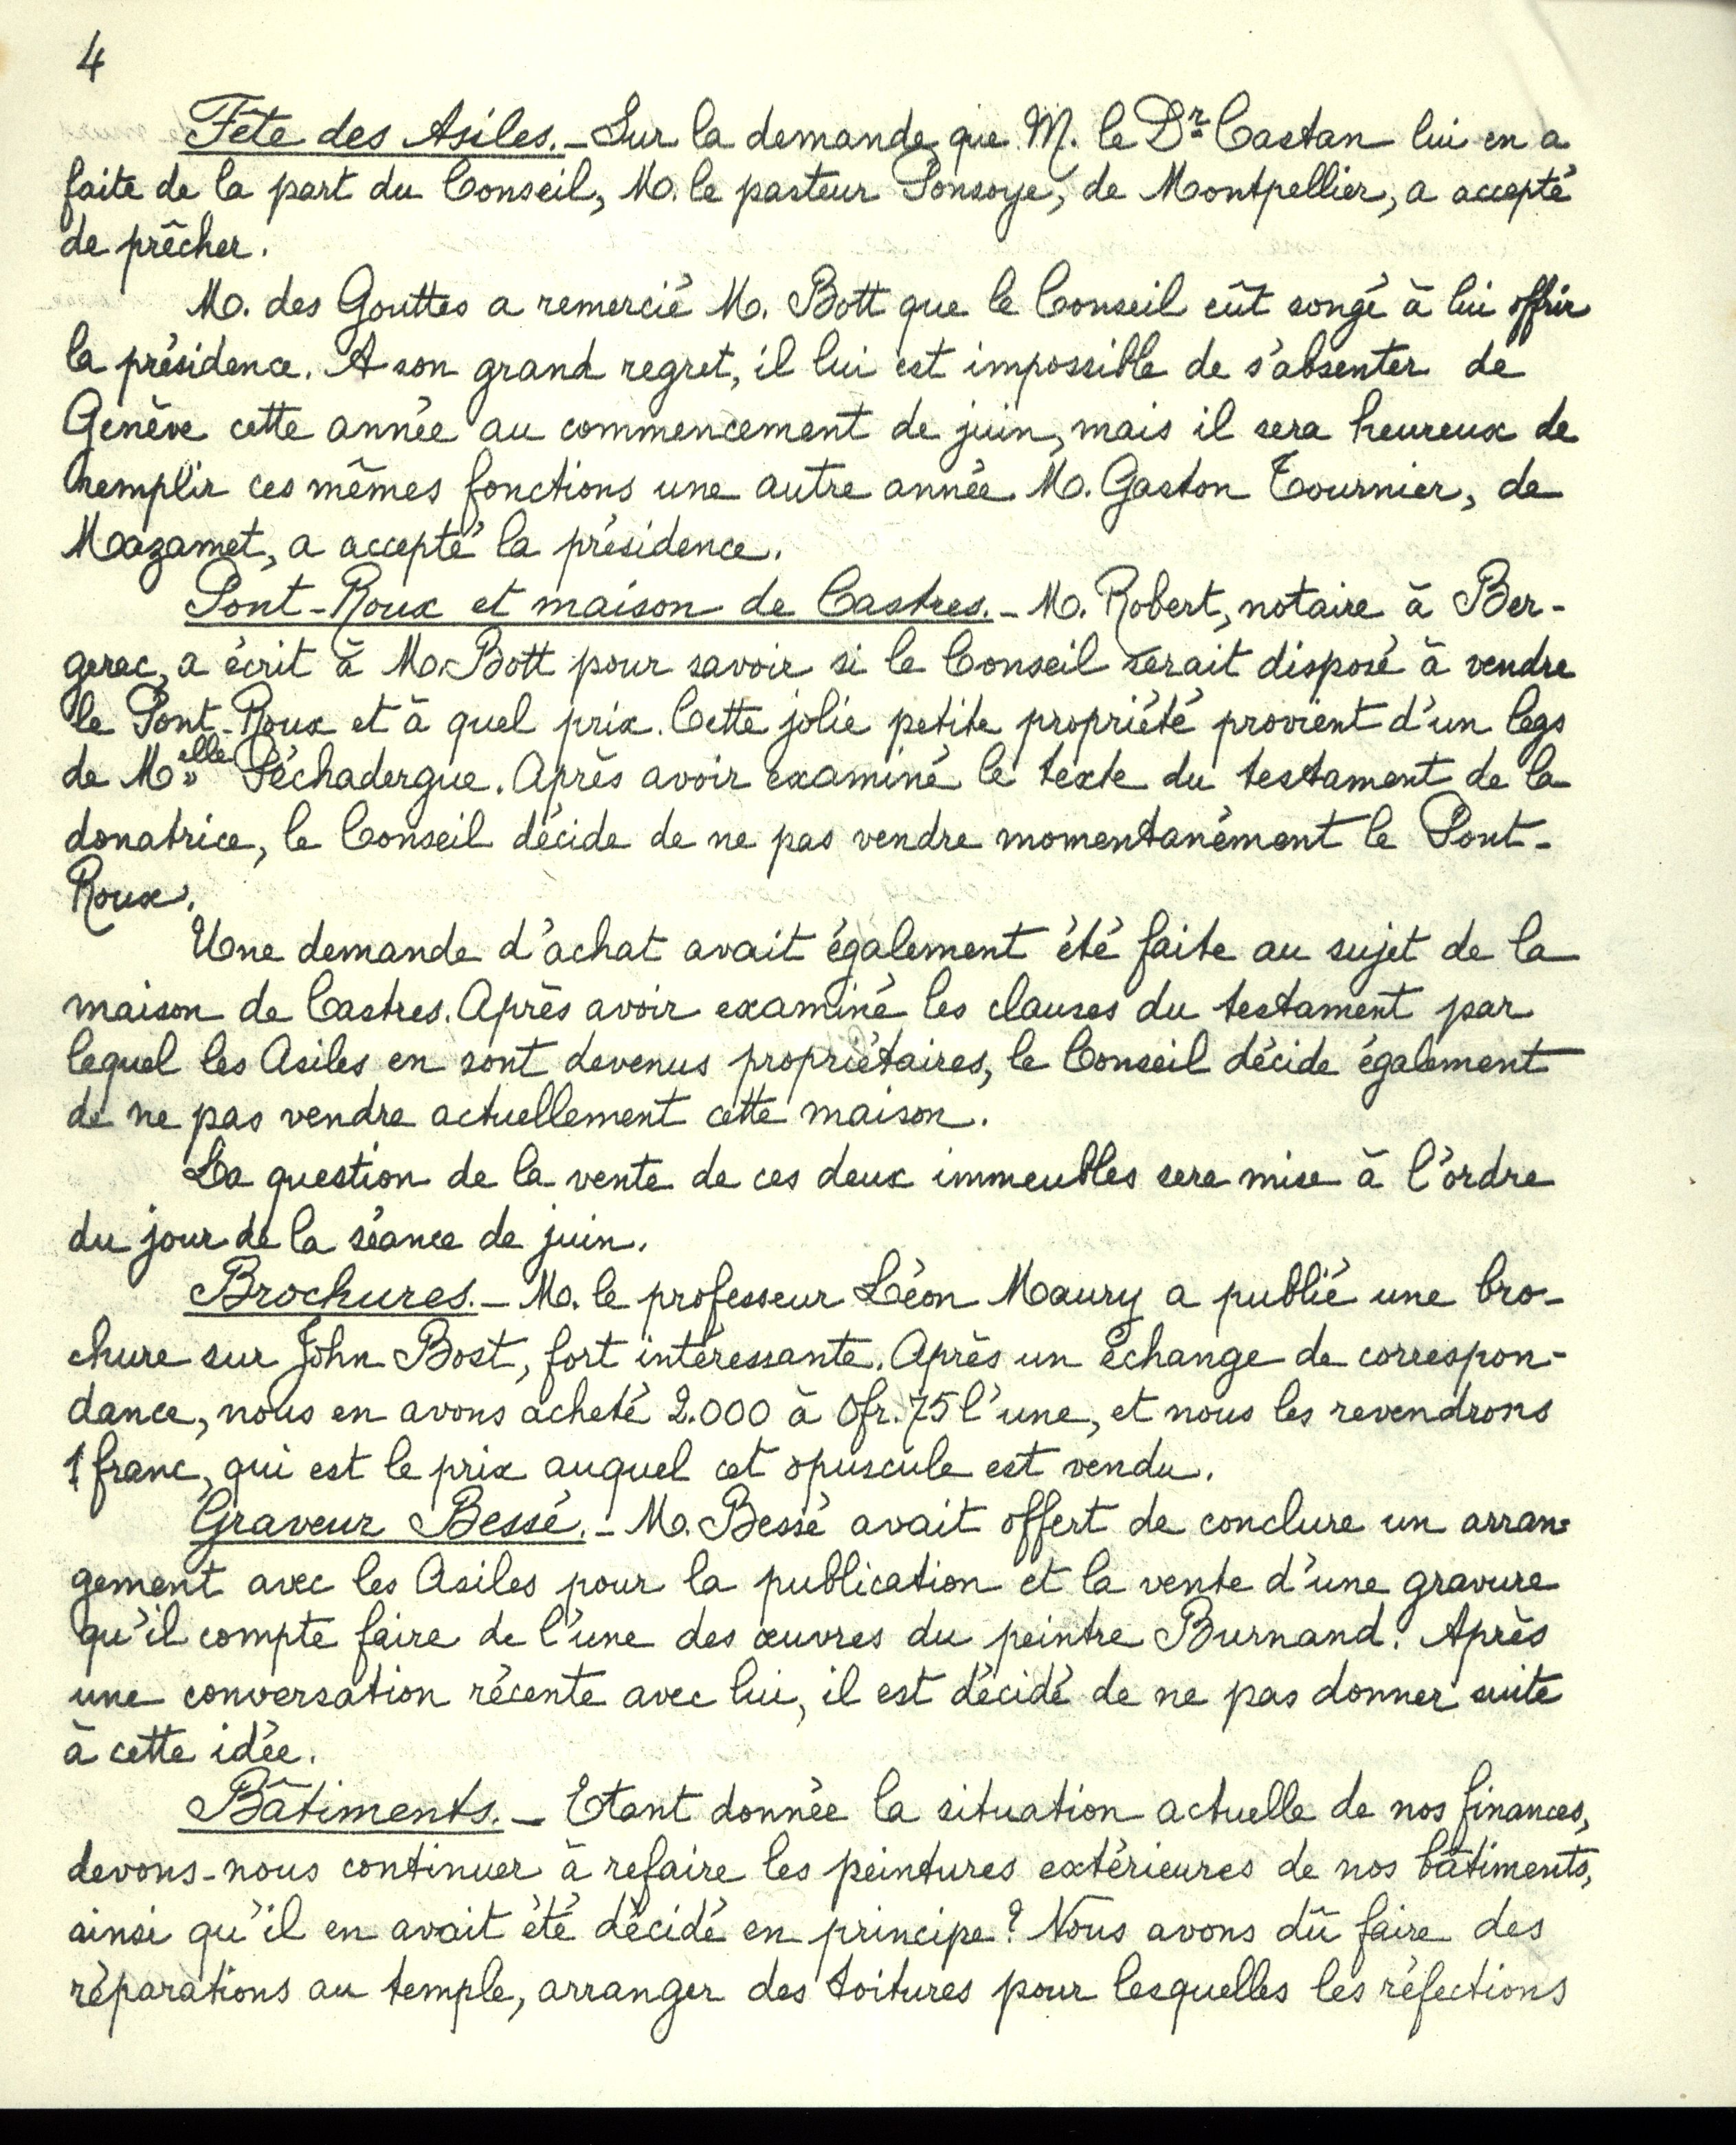 4
Fête des Asiles. - Sur la demande que M. le Dr Castan lui en a
faite de la part du Conseil, M. le pasteur Ponsoye, de Montpellier, a accepté
de prêcher.
M. des Gouttes a remercié M. Bott que le Conseil eût songé à lui offrir
la présidence. A son grand regret, il lui est impossible de s'absenter de
Genève cette année au commencement de juin, mais il sera heureux de
remplir ces mêmes fonctions une autre année. M. Gaston Tournier, de
Mazamet, a accepté la présidence.
Pont-Roux et maison de Castres. - M. Robert, notaire à Ber-
gerac, a écrit à M. Bott pour savoir si le Conseil serait disposé à vendre
le Pont-Roux et à quel prix. Cette jolie petite propriété provient d'un legs
de Melle Péchadergue. Après avoir examiné le texte du testament de la
donatrice, le Conseil décide de ne pas vendre momentanément le Pont-
Roux.
Une demande d'achat avait également été faite au sujet de la
maison de Castres. Après avoir examiné les clauses du testament par
lequel les Asiles en sont devenus propriétaires, le Conseil décide également
de ne pas vendre actuellement cette maison.
La question de la vente de ces deux immeubles sera mise à l'ordre
du jour de la séance de juin.
Brochures. - M. le professeur Léon Maury a publié une bro-
chure sur John Bost, fort intéressante. Après un échange de correspon-
dance, nous en avons acheté 2.000 à 0fr.75 l'une, et nous les revendrons
1 franc, qui est le prix auquel cet opuscule est vendu.
Graveur Bessé. - M. Bessé avait offert de conclure un arran-
gement avec les Asiles pour la publication et la vente d'une gravure
qu'il compte faire de l'une des œuvres du peintre Burnand. Après
une conversation récente avec lui, il est décidé de ne pas donner suite
à cette idée.
Bâtiments. - Etant donnée la situation actuelle de nos finances,
devons-nous continuer à refaire les peintures extérieures de nos bâtiments,
ainsi qu'il en avait été décidé en principe ? Nous avons dû faire des
réparations au temple, arranger des toitures pour lesquelles les réfections